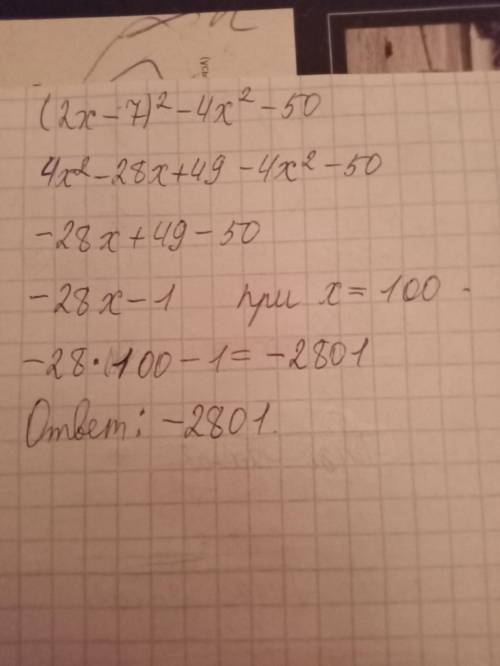 (2x-7)² - 4x² - 50
4x² - 28x + 49 - 4x² - 50
-28x + 49 - 50
-28x - 1 при x = 100
-28·100 - 1 = -2801
Ответ: -2801.